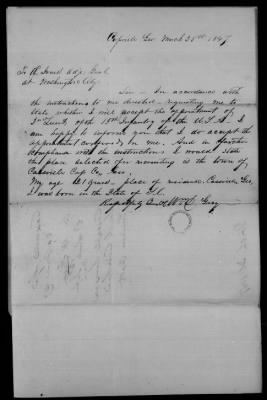 March 25th, 1847
To R. Jones Adjt. Genl.
at Washington City
Sir – In accordance with
the instructions to me directed requesting me to
state whether I will accept the appointment of
2d Lieut, of the 13th Infantry of the U.S.A. I
am happy to inform you that I do accept the
appointment conferred on me. And in further
Compliance with the instructions I would state
the place selected for recruiting is the town of
Cassville Cass Co, Geo.
My age 21 years, place of residence Cassville, Geo,
I was born in the State of
Respectfully